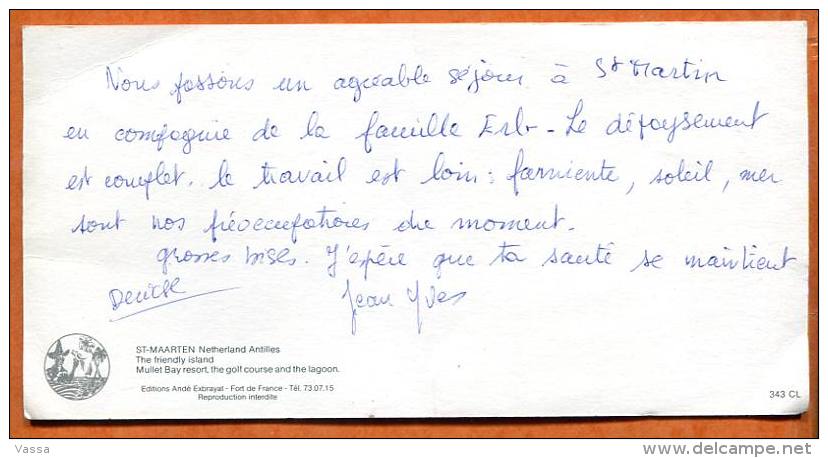 Nous passons un agréable séjour à St Martin
en compagnie de la famille - Le dépaysement
est complet. le travail est loin : farniente, soleil, mer
sont nos préoccupations du moment.
grosses bises. J'espère que ta santé se maintient
Denise Jean Yves
ST-MAARTEN Netherland Antilles
The friendly island
Mullet Bay resort, the golf course and the lagoon.
Editions Andé Exbrayat - Fort de France - Tél. 73.07.15
Reproduction interdite
343 CL
Vassa
www.delcampe.net